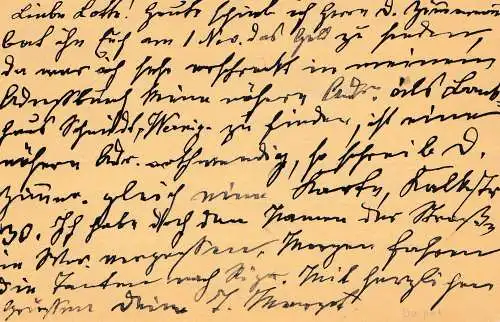 Liebe Lotte! Heute schrieb ich Herrn D. Zimmermann
bat ihn Euch am 1 Nov. das Geld zu senden
da war ich sehr erschreckt in meinem
Adressbuch keine nähere Adr. als Bank
haus Schmidt, zu finden, ist eine
nähere Adr. nothwendig, so schreib D.
Zimmer. gleich eine Karte, Kalkstr.
30. Ich habe doch den Namen der Straße
in vergessen, Morgen fahren
die Tanten nach Riga. Mit herzlichen
Grüssen Deine J.